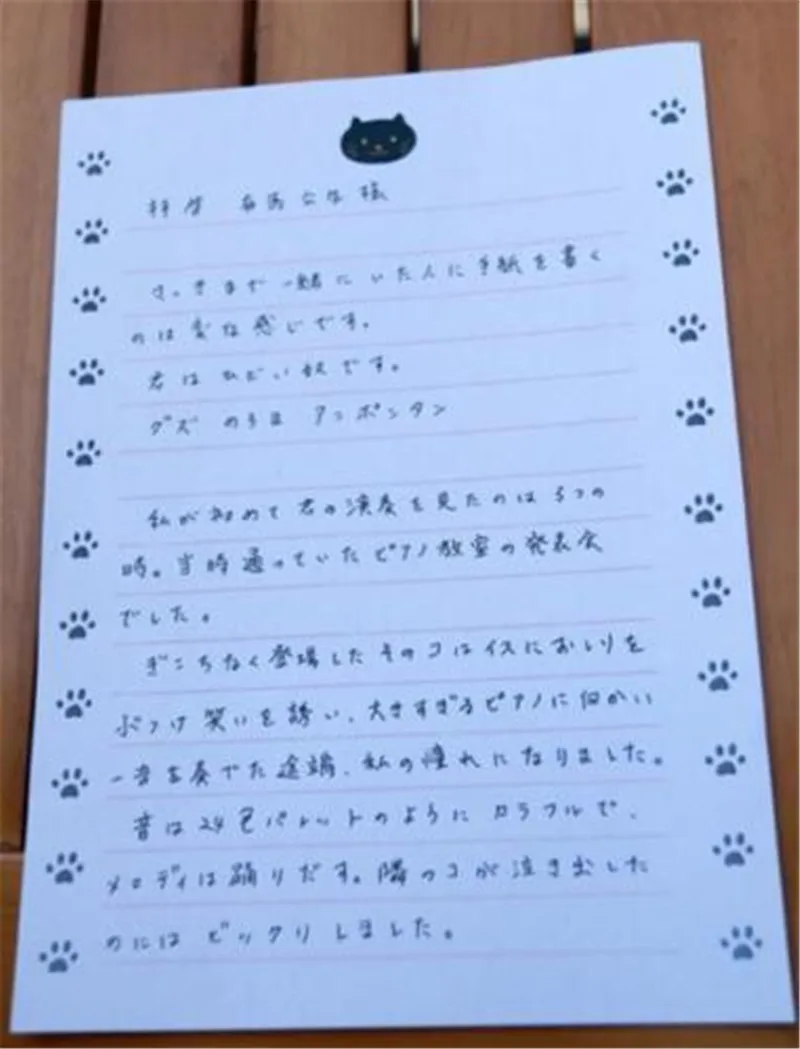 拝啓 有馬公生様
さっきまで一緒にいた人に手紙を書く
のは変な感じです。
君はひどい奴です。
グズ のろま アンポンタン
私が初めて君の演奏を見たのは5つの
時。当時通っていたピアノ教室の発表会
でした。
ぎこちなく登場したそのコはイスにおしりを
ぶつけ笑いを誘い、大きすぎるピアノに向かい
一音を奏でた途端、私の憧れになりました。
音は24色パレットのようにカラフルで、
メロディは踊りだす。隣のコが泣き出した
のにはビックリしました。